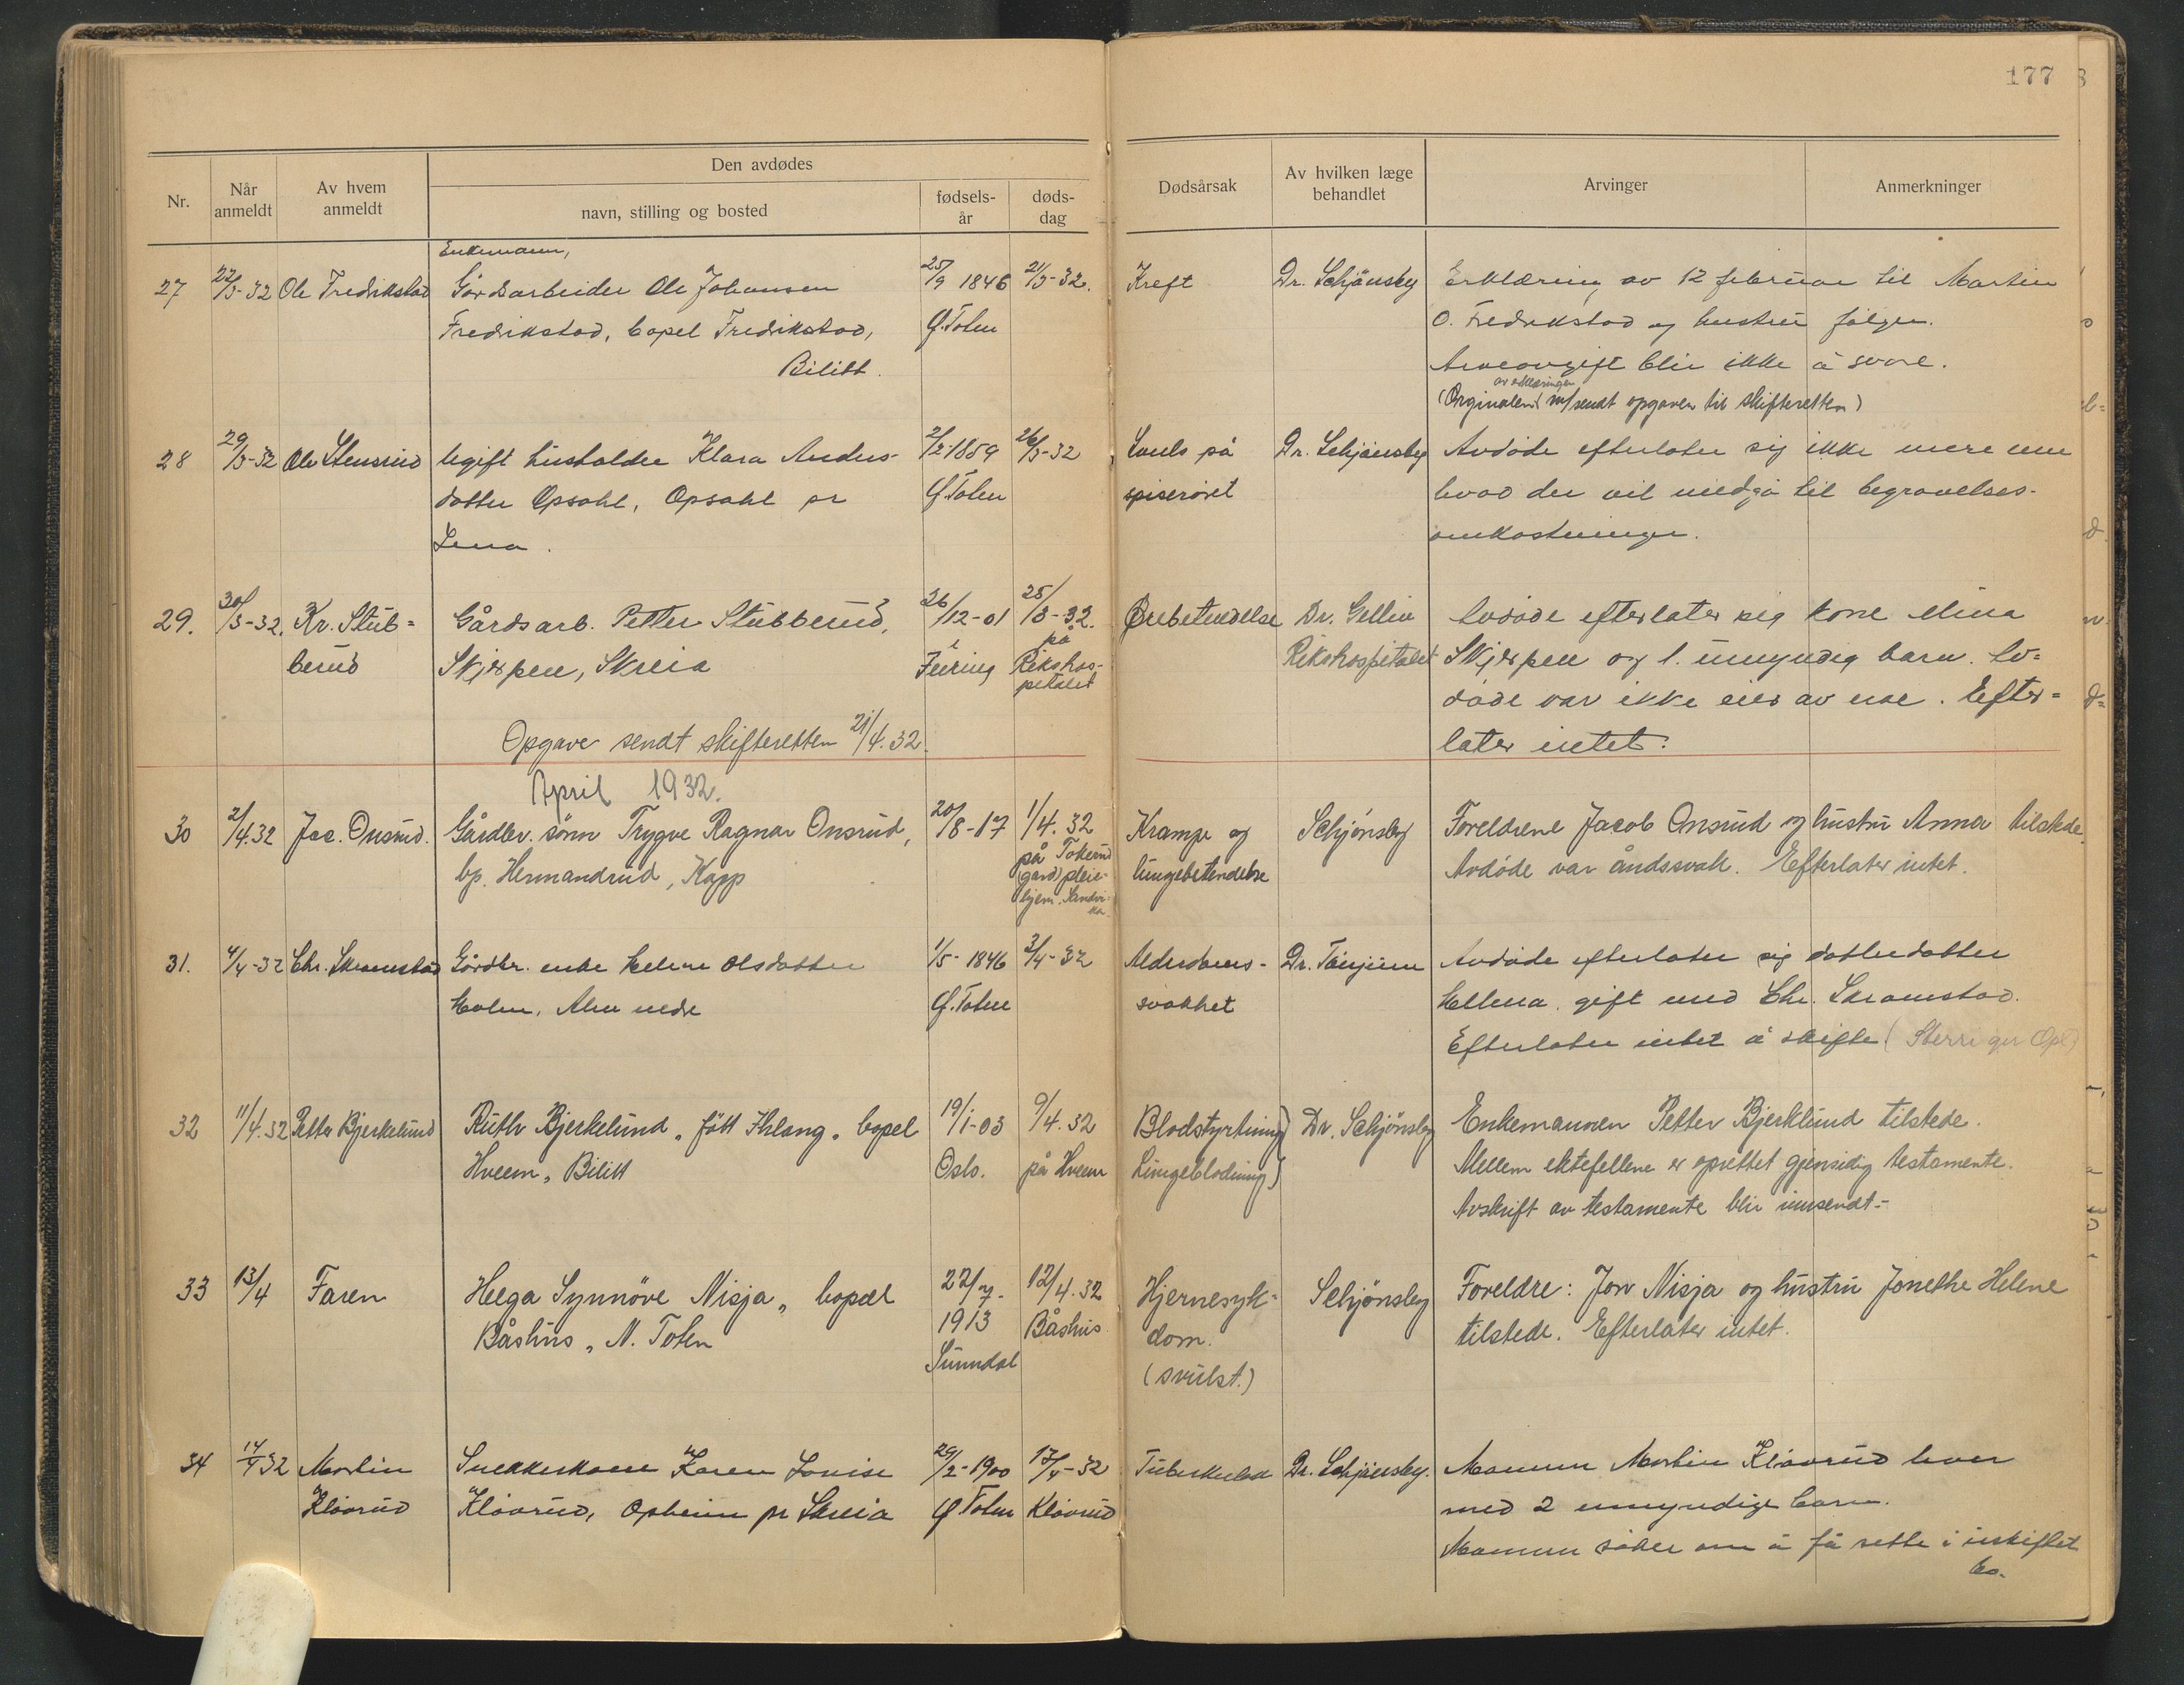 177
Den avdødes
Nr.
Når anmeldt
Av hvem anmeldt
navn, stilling og bosted
fødsels-år
døds-dag
Dødsårsak
Av hvilken læge behandlet
Arvinger
Anmerkninger
Enkemann,
27 22/3-32 Ole Fredrikstad Gårdsarbeider Ole Johansen 25/9 1846 21/3-32. Kreft Dr. Schjönsby Erklæring av 12 februar til Martin
Fredrikstad, bopel Fredrikstad, Ø. Toten O. Fredrikstad og hustru følger.
Bilitt. Arveavgift blir ikke å svare.
av erklæringen
(Orginalen m/sendt opgaven til skifteretten)
28 29/3-32 Ole Stensrud Ugift husholder Klara Anders- 2/2-1859 26/3-32 Sauls på Dr. Schjönsby Avdøde efterlater sig ikke mere enn
datter Opsahl, Opsahl pr Ø. Toten spiserøret hvad der vil medgå til begravelses-
Lena. omkostninger.
29. 30/3-32. Kr. Stub= Gårdsarb. Petter Stubberud, 26/12-01 25/3-32. Ørebetendelse Dr. Gellin Avdøde efterlater sig kone Mina
berud Skjerpen, Skreia i Feiring på Rikshos-pitalet Rikshospitalet Skjerpen og 1. umyndig barn. Av=
døde var ikke eier av noe. Efter=
Opgave sendt skifteretten 21/4.32. later intet.
April 1932.
30 2/4.32 Jac. Onsrud. Gårdbr. sønn Trygve Ragnar Onsrud, 20/8-17 1/4.32 Krampe og Schjønsby Foreldrene Jacob Onsrud og hustru Anna tilstede.
bp. Hermandrud, Kapp på Tokerud lungebetendelse Avdøde var åndssvak. Efterlater intet.
(gard) pleie-
hjem. Sandvi-
ka.
31. 4/4-32 Chr. Skramstad Gårdbr. enke Helene Olsdatter 1/5-1846 3/4-32 Alderdoms- Dr. Tönjum Avdøde efterlater sig datterdatter
Holm, Alm nedre Ø. Toten svakhet Hellena, gift med Chr. Skramstad.
Efterlater intet å skifte
32 11/4.32 Petter Bjerkelund Ruth Bjerkelund, født Ihlang, bopel 19/1-03 9/4.32 Blodstyrtning) Dr. Schjønsby Enkemannen Petter Bjerklund tilstede.
Hveem, Bilitt Oslo. på Hveem Lungeblodning) Mellem ektefellene er oprettet gjensidig testamente.
Avskrift av testamente blir innsendt.-
33 13/4 Faren Helga Synnöve Nisja, bopæl 22/7- 12/4.32 Hjernesyk= Schjønsby Foreldre: Jon Nisja og hustru Jonethe Helene
Båshus, N. Toten 1913 Båshus. dom. tilstede. Efterlater intet.
Sunndal (svulst.)
34 14/4 32 Martin Snekkerkone Karen Lovise 29/2-1900 13/4-32 Tuberkulose Dr. Schjönsby. Mannen Martin Kløvrud lever
Kløvrud Kløvrud, Opheim pr Skreia Ø Toten Kløvrud med 2 umyndige barn.
Mannen søker om å få sette i uskiftet
bo.